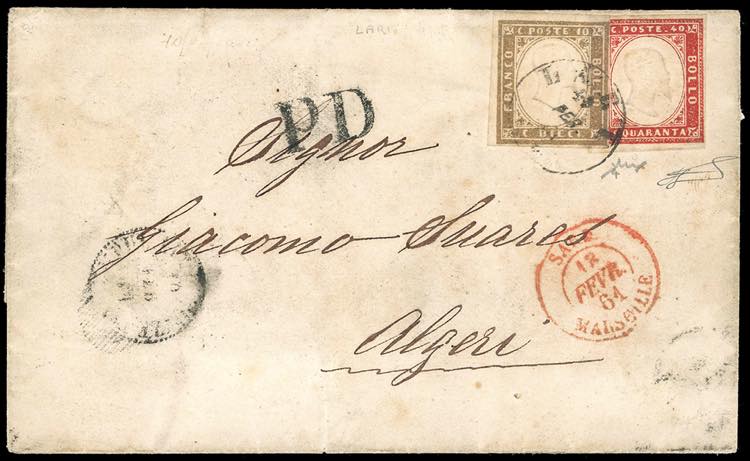 C. POSTE 10
FRANCO
BOLLO
C. DIECI
C. POSTE. 40
BOLLO
QUARANTA
PD
Signor
Giacomo Suares
Algeri
12
FEVR.
61
MARSEILLE